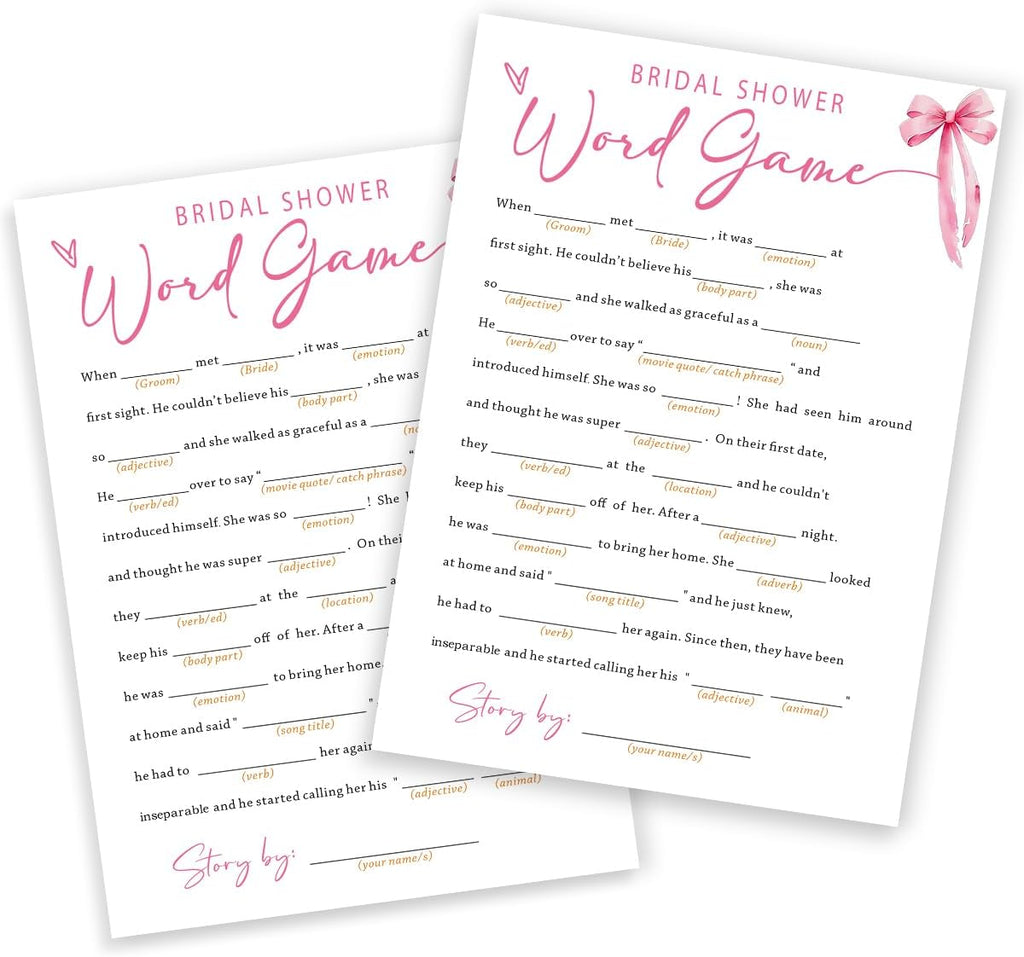 BRIDAL SHOWER
Word Game
When ________ met ________ , it was ________ at
(Groom) (Bride) (emotion)
first sight. He couldn't believe his ________ , she was
(body part)
so ________ and she walked as graceful as a ________
(adjective) (noun)
He ________ over to say “________ “ and
(verb/ed) (movie quote/ catch phrase)
introduced himself. She was so ________ ! She had seen him around
(emotion)
and thought he was super ________ . On their first date,
(adjective)
they ________ at the ________ and he couldn't
(verb/ed) (location)
keep his ________ off of her. After a ________ night.
(body part) (adjective)
he was ________ to bring her home. She ________ looked
(emotion) (adverb)
at home and said " ________ " and he just knew,
(song title)
he had to ________ her again. Since then, they have been
(verb)
inseparable and he started calling her his " ________ ________ "
(adjective) (animal)
Story by: ________
(your name/s)
BRIDAL SHOWER
Word Game
When ________ met ________ , it was ________ at
(Groom) (Bride) (emotion)
first sight. He couldn't believe his ________ , she was
(body part)
so ________ and she walked as graceful as a ________
(adjective)
He ________ over to say “ ________ “
(verb/ed) (movie quote/ catch phrase)
introduced himself. She was so ________ ! She
(emotion)
and thought he was super ________ . On
(adjective)
they ________ at the ________
(verb/ed) (location)
keep his ________ off of her. After a ________
(body part)
he was ________ to bring her home.
(emotion)
at home and said " ________ "
(song title)
he had to ________ her again
(verb)
inseparable and he started calling her his " ________ ________
(adjective) (animal)
Story by: ________
(your name/s)